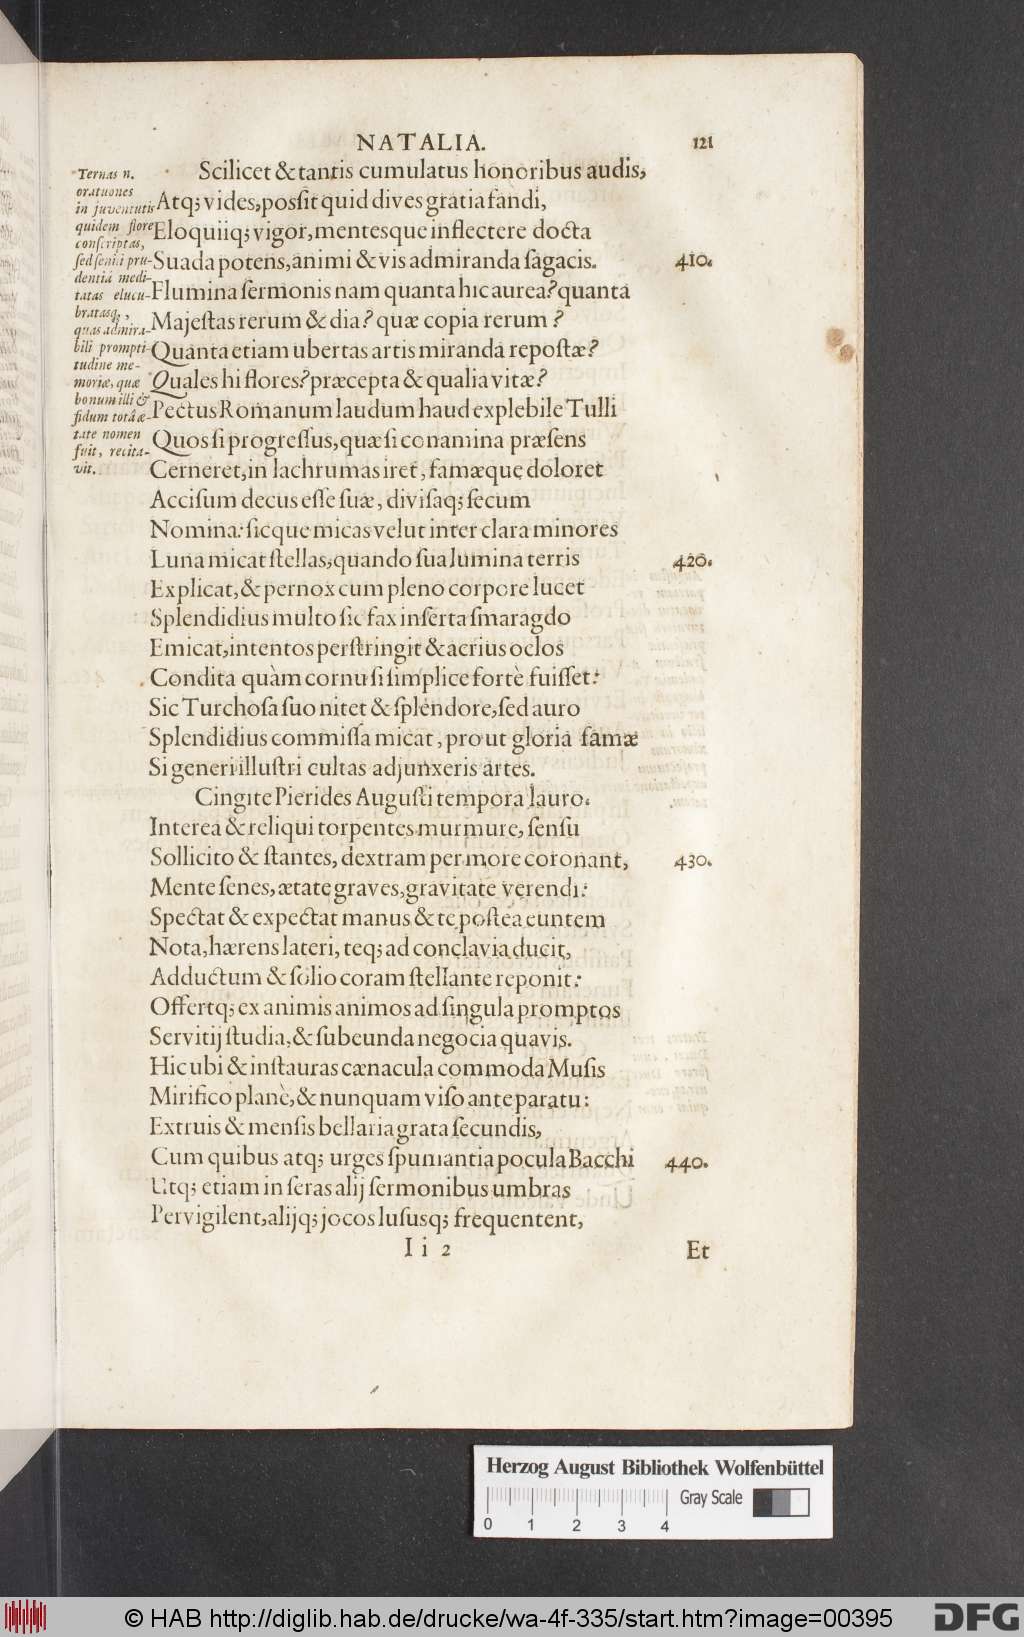 NATALIA. 121
Ternas n.
orationes
in juventutis
quidem flore
conſcriptas,
ſed ſenili pru-
dentiâ medi-
tatas elucu-
bratasq́;,
quas admira-
bili prompti-
tudine me-
moriæ, quæ
bonum illi &
fidum totâ æ-
tate nomen
fuit, recita-
vit.
Scilicet & tantis cumulatus honoribus audis,
Atq; vides, poſſit quid dives gratia fandi,
Eloquiiq; vigor, mentesque inflectere docta
Suada potens, animi & vis admiranda ſagacis. 410.
Flumina ſermonis nam quanta hic aurea? quanta
Majeſtas rerum & dia? quæ copia rerum?
Quanta etiam ubertas artis miranda repoſtæ?
Quales hi flores? præcepta & qualia vitæ?
Pectus Romanum laudum haud explebile Tulli
Quos ſi progreſſus, quæ ſi conamina præſens
Cerneret, in lachrumas iret, famæque doloret
Acciſum decus eſſe ſuæ, diviſaq; ſecum
Nomina: ſicque micas velut inter clara minores
Luna micat ſtellas, quando ſua lumina terris 420.
Explicat, & pernox cum pleno corpore lucet
Splendidius multo ſic fax inſerta ſmaragdo
Emicat, intentos perſtringit & acrius oclos
Condita quàm cornu ſi ſimplice fortè fuiſſet:
Sic Turchoſa ſuo nitet & ſplendore, ſed auro
Splendidius commiſſa micat, prout gloria famæ
Si generi illuſtri cultas adjunxeris artes.
Cingite Pierides Auguſti tempora lauro.
Interea & reliqui torpentes murmure, ſenſu
Sollicito & ſtantes, dextram per more coronant, 430.
Mente ſenes, ætate graves, gravitate verendi:
Spectat & expectat manus & te poſtea euntem
Nota, hærens lateri, teq; ad conclavia ducit,
Adductum & ſolio coram ſtellante reponit:
Offertq; ex animis animos ad ſingula promptos
Servitij ſtudia, & ſubeunda negocia quavis.
Hic ubi & inſtauras cænacula commoda Muſis
Mirifico planè, & nunquam viſo ante paratu:
Extruis & menſis bellaria grata ſecundis,
Cum quibus atq; urges ſpumantia pocula Bacchi 440.
Utq; etiam in ſeras alij ſermonibus umbras
Pervigilent, alijq; jocos luſusq; frequentent,
I i 2 Et
Herzog August Bibliothek Wolfenbüttel
0 1 2 3 4 Gray Scale
© HAB http://diglib.hab.de/drucke/wa-4f-335/start.htm?image=00395 DFG